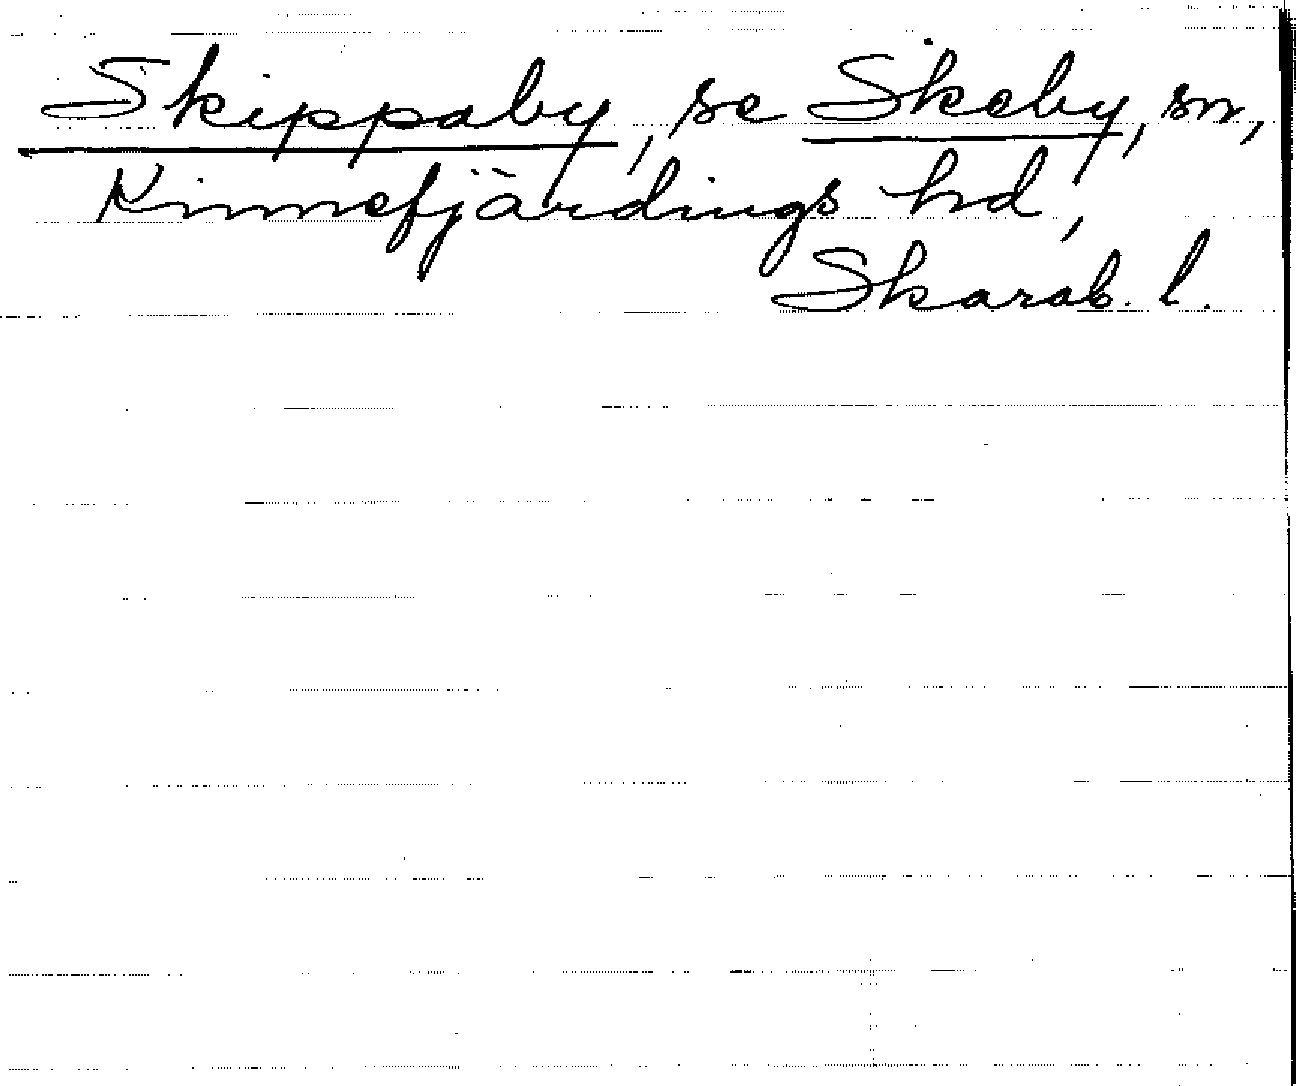 Skippaby, se Skeby, sn,
Kinnefjärdings hd,
Skarab. l.